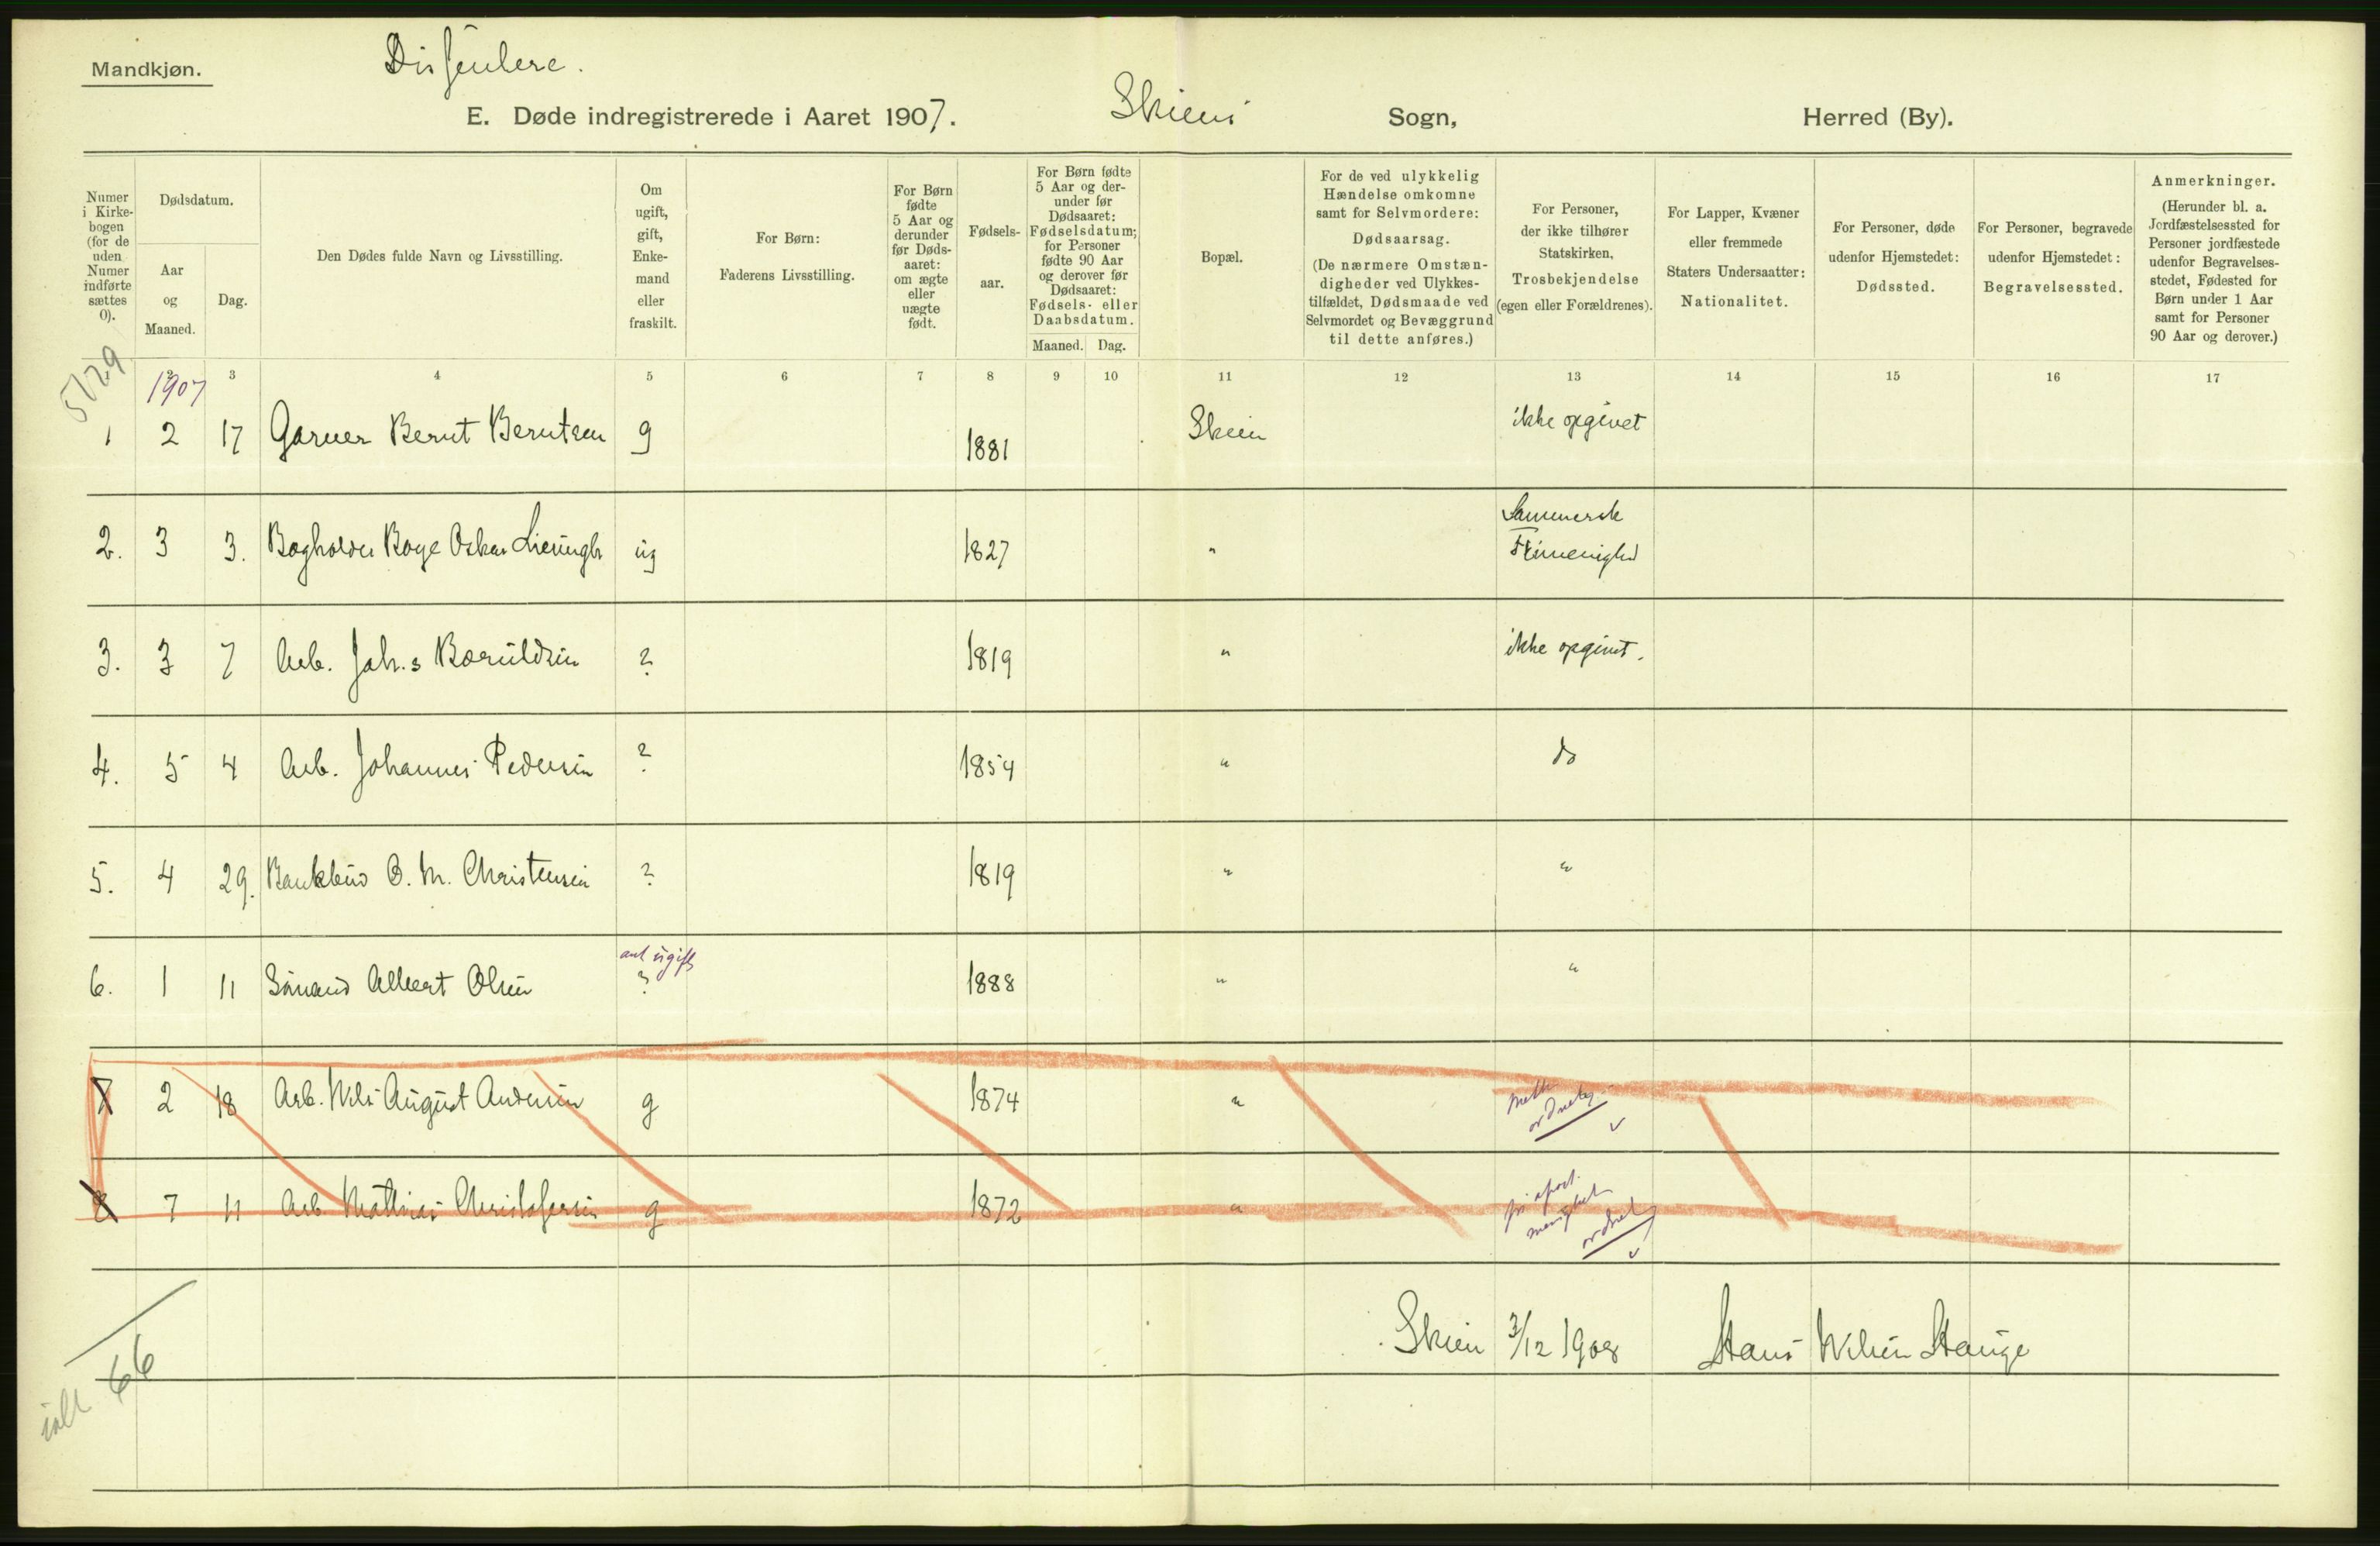 Mandkjøn.
Dissentere.
E. Døde indregistrerede i Aaret 1907. Skiens Sogn, Herred (By).
Numer i Kirkebogen (for de uden Numer indførte sættes 0).
Dødsdatum.
Aar og Maaned.
Dag.
Den Dødes fulde Navn og Livsstilling.
Om ugift, gift, Enkemand eller fraskilt.
For Børn: Faderens Livsstilling.
For Børn fødte 5 Aar og derunder før Dødsaaret: om ægte eller uægte født.
Fødselsaar.
For Børn fødte 5 Aar og derunder før Dødsaaret: Fødselsdatum; for Personer fødte 90 Aar og derover før Dødsaaret: Fødsels- eller Daabsdatum.
Maaned. Dag.
Bopæl.
For de ved ulykkelig Hændelse omkomne samt for Selvmordere: Dødsaarsag. (De nærmere Omstændigheder ved Ulykkestilfældet, Dødsmaade ved Selvmordet og Bevæggrund til dette anføres.)
For Personer, der ikke tilhører Statskirken, Trosbekjendelse (egen eller Forældrenes).
For Lapper, Kvæner eller fremmede Staters Undersaatter: Nationalitet.
For Personer, døde udenfor Hjemstedet: Dødssted.
For Personer, begravede udenfor Hjemstedet: Begravelsessted.
Anmerkninger. (Herunder bl. a. Jordfæstelsessted for Personer jordfæstede udenfor Begravelsesstedet, Fødested for Børn under 1 Aar samt for Personer 90 Aar og derover.)
2 3 4 5 6 7 8 9 10 11 12 13 14 15 16 17
1907
1 2 17 Garver Bernt Berntsen g 1881 Skien ikke opgivet
2. 3 3. Bogholder Boye Oskar ug 1827 "
3. 3 7 Arb. Joh.s ? 1819 " ikke opgivet.
4. 5 4 Arb. Johannes Pedersen ? 1854 " do
5. 4 29. Bankbud O. M. Christensen ? 1819 " "
ant ugift
6. 1 11 Sømand Albert Olsen ? 1888 " "
7 2 18 Arb. Nils August Andersen g 1874 "
ordnet
8 7 11 Arb. Mathias Christofersen g 1872 "
fri apost. menighet
ordnet
Skien 3/12 1908 Hans Nilsen Hauge
ialt 66